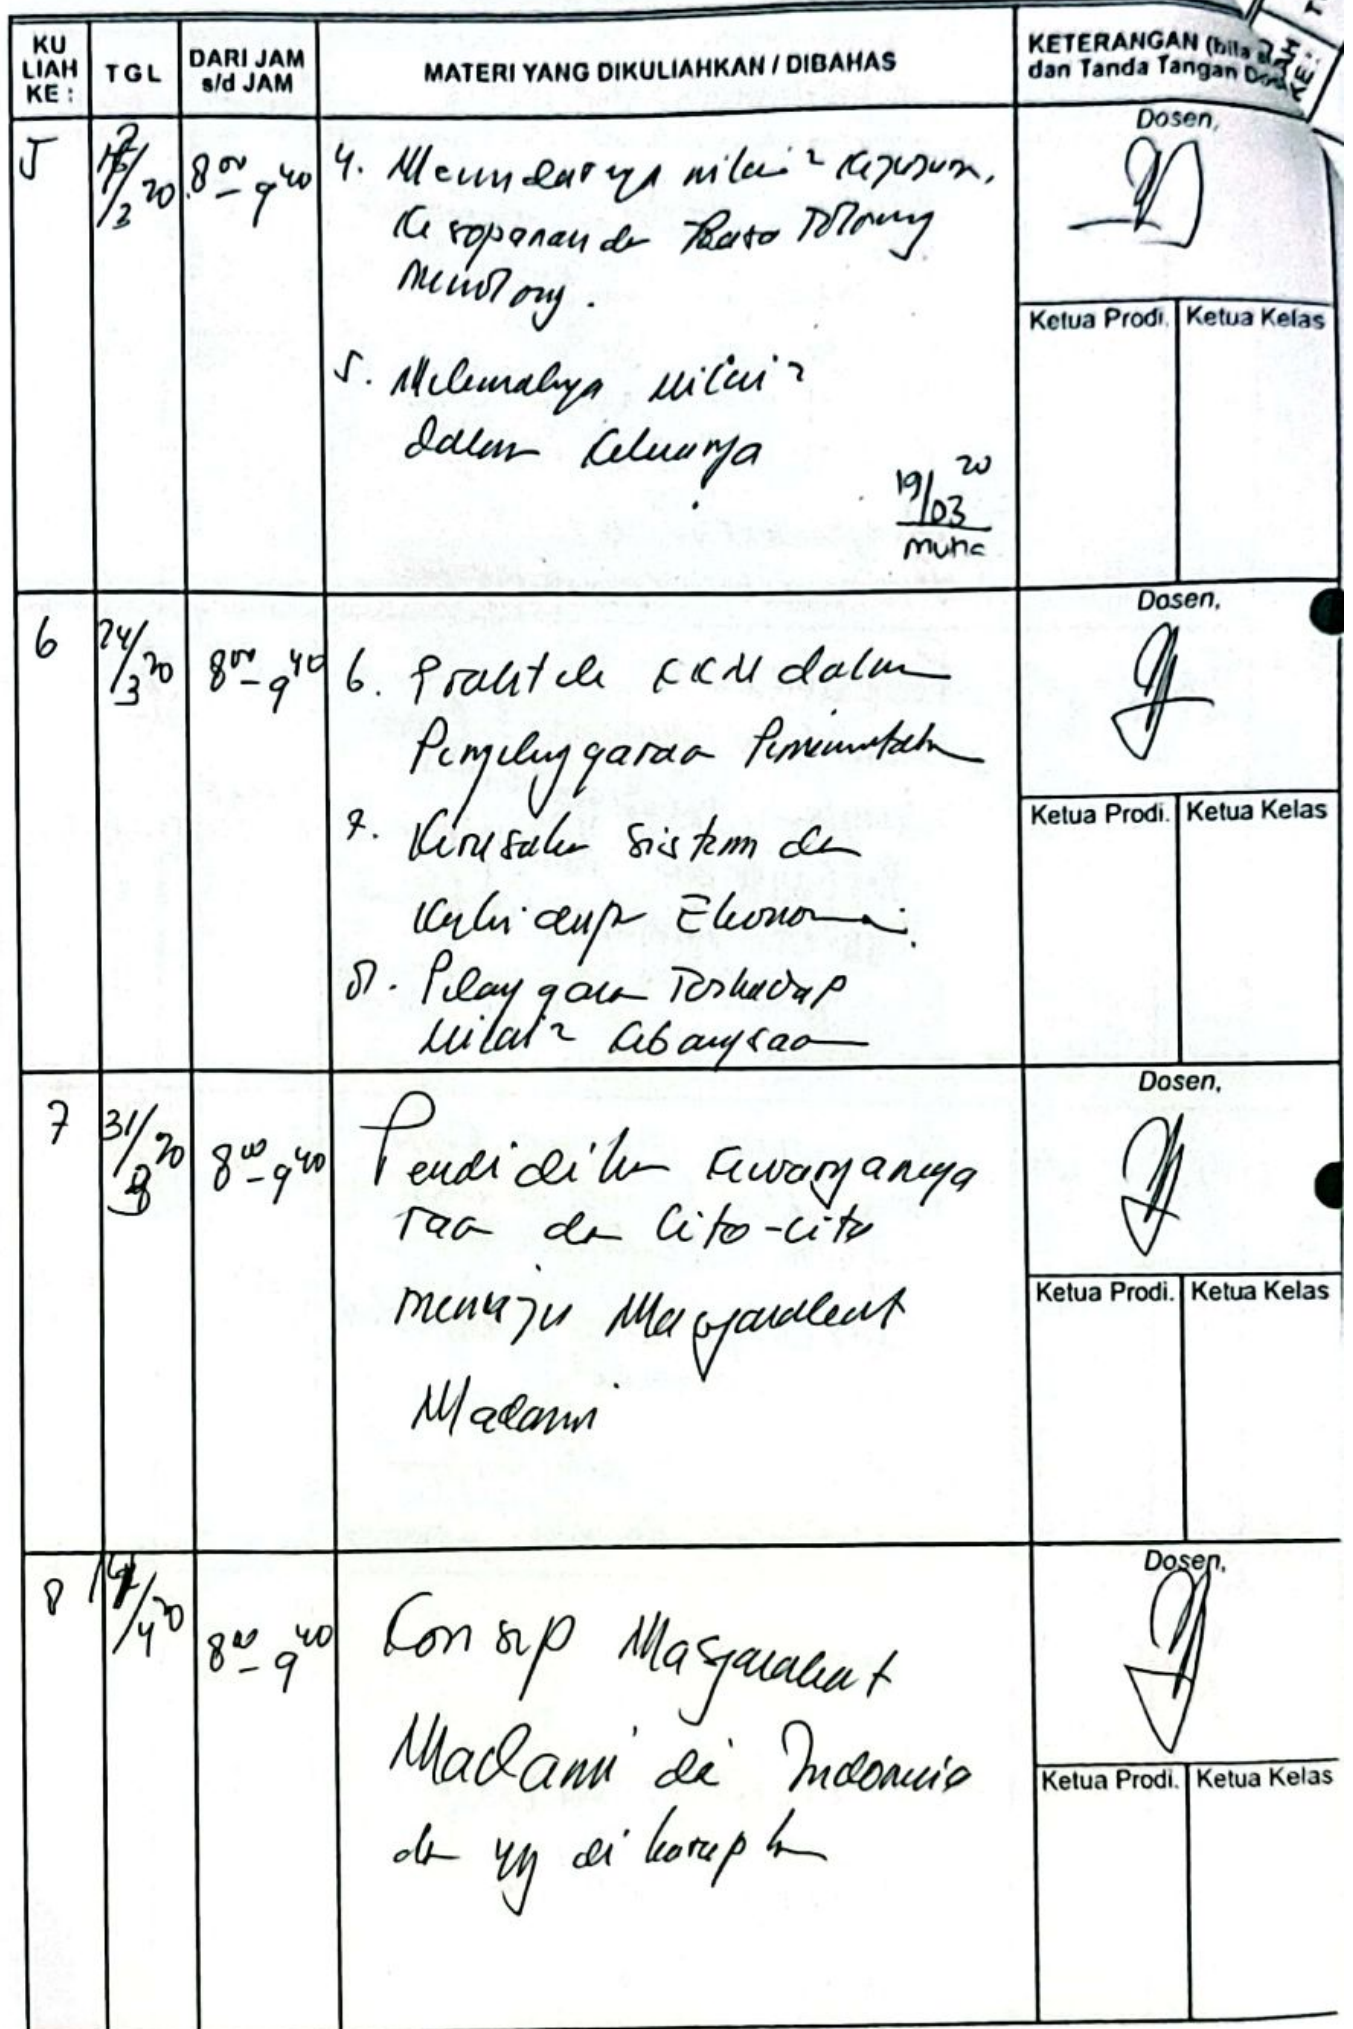 KU LIAH KE :
TGL
DARI JAM s/d JAM
MATERI YANG DIKULIAHKAN / DIBAHAS
KETERANGAN (bila
dan Tanda Tangan
5
8⁰⁰ – 9⁴⁰
4. nilai²
Kesopanan dan Rasa Tolong
Menolong.
5. nilai²
dalam Keluarga
19/03 20
Dosen,
Ketua Prodi.
Ketua Kelas
6
24/3 20
8⁰⁰ – 9⁴⁰
6. Praktek KKN dalam
7. sistem dan
Ekonomi.
8. Terhadap
nilai² Kebangsaan
Dosen,
Ketua Prodi.
Ketua Kelas
7
31/3 20
8⁰⁰ – 9⁴⁰
Pendidikan Kewarganega
raan dan Cita-cita
menuju Masyarakat
Madani
Dosen,
Ketua Prodi.
Ketua Kelas
8
8⁰⁰ – 9⁴⁰
Konsep Masyarakat
Madani di Indonesia
dan yg diharapkan
Dosen,
Ketua Prodi.
Ketua Kelas